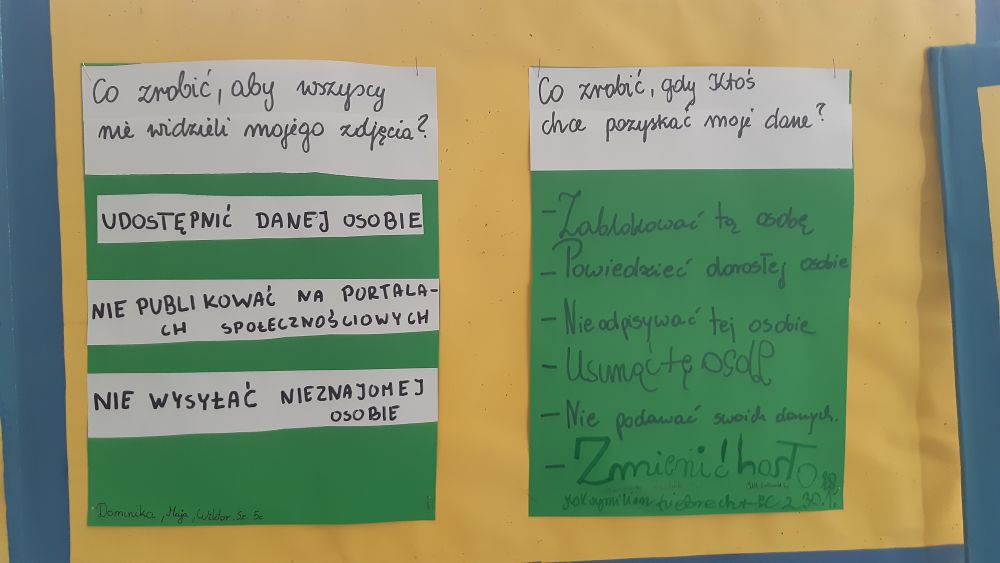 Co zrobić, aby wszyscy
nie widzieli mojego zdjęcia?
UDOSTĘPNIĆ DANEJ OSOBIE
NIE PUBLIKOWAĆ NA PORTALA-
CH SPOŁECZNOŚCIOWYCH
NIE WYSYŁAĆ NIEZNAJOMEJ
OSOBIE
Dominika, Maja, Wiktor. Sz. 5c
Co zrobić, gdy Ktoś
chce pozyskać moje dane?
- Zablokować tą osobę
- Powiedzieć dorosłej osobie
- Nie odpisywać tej osobie
- Usunąć tę osobę
- Nie podawać swoich danych.
- Zmienić hasło